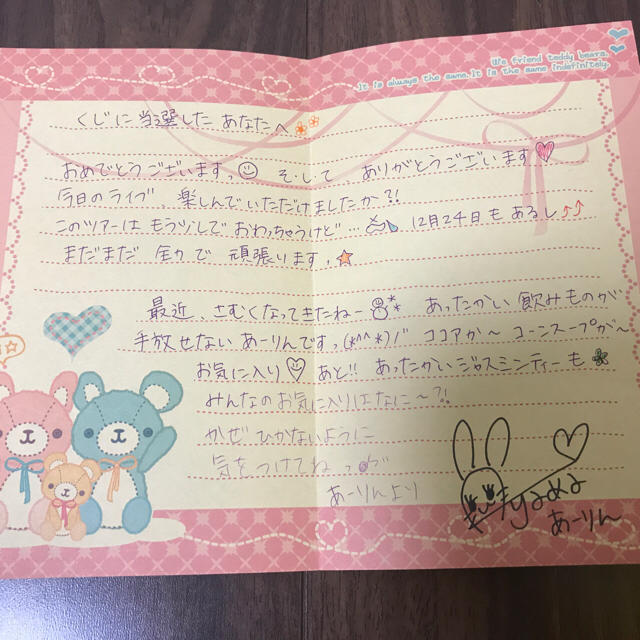 We friend teddy bears.
It is always the same.It is the same indefinitely.
くじに当選したあなたへ
おめでとうございますっ そして、ありがとうございます
今日のライブ、楽しんでいただけましたか?!
このツアーはもう少しでおわっちゃうけど… 12月24日もあるし↑↑
まだまだ全力で頑張りますっ☆
最近、さむくなってきたねー あったかい飲みものが
手放せないあーりんですっ(*^^*)/゛ココアか〜コーンスープが〜
お気に入り♡あと!!あったかいジャスミンティーも
みんなのお気に入りはなに〜?!
かぜひかないように
気をつけてねっ
あーりんより
あーりん